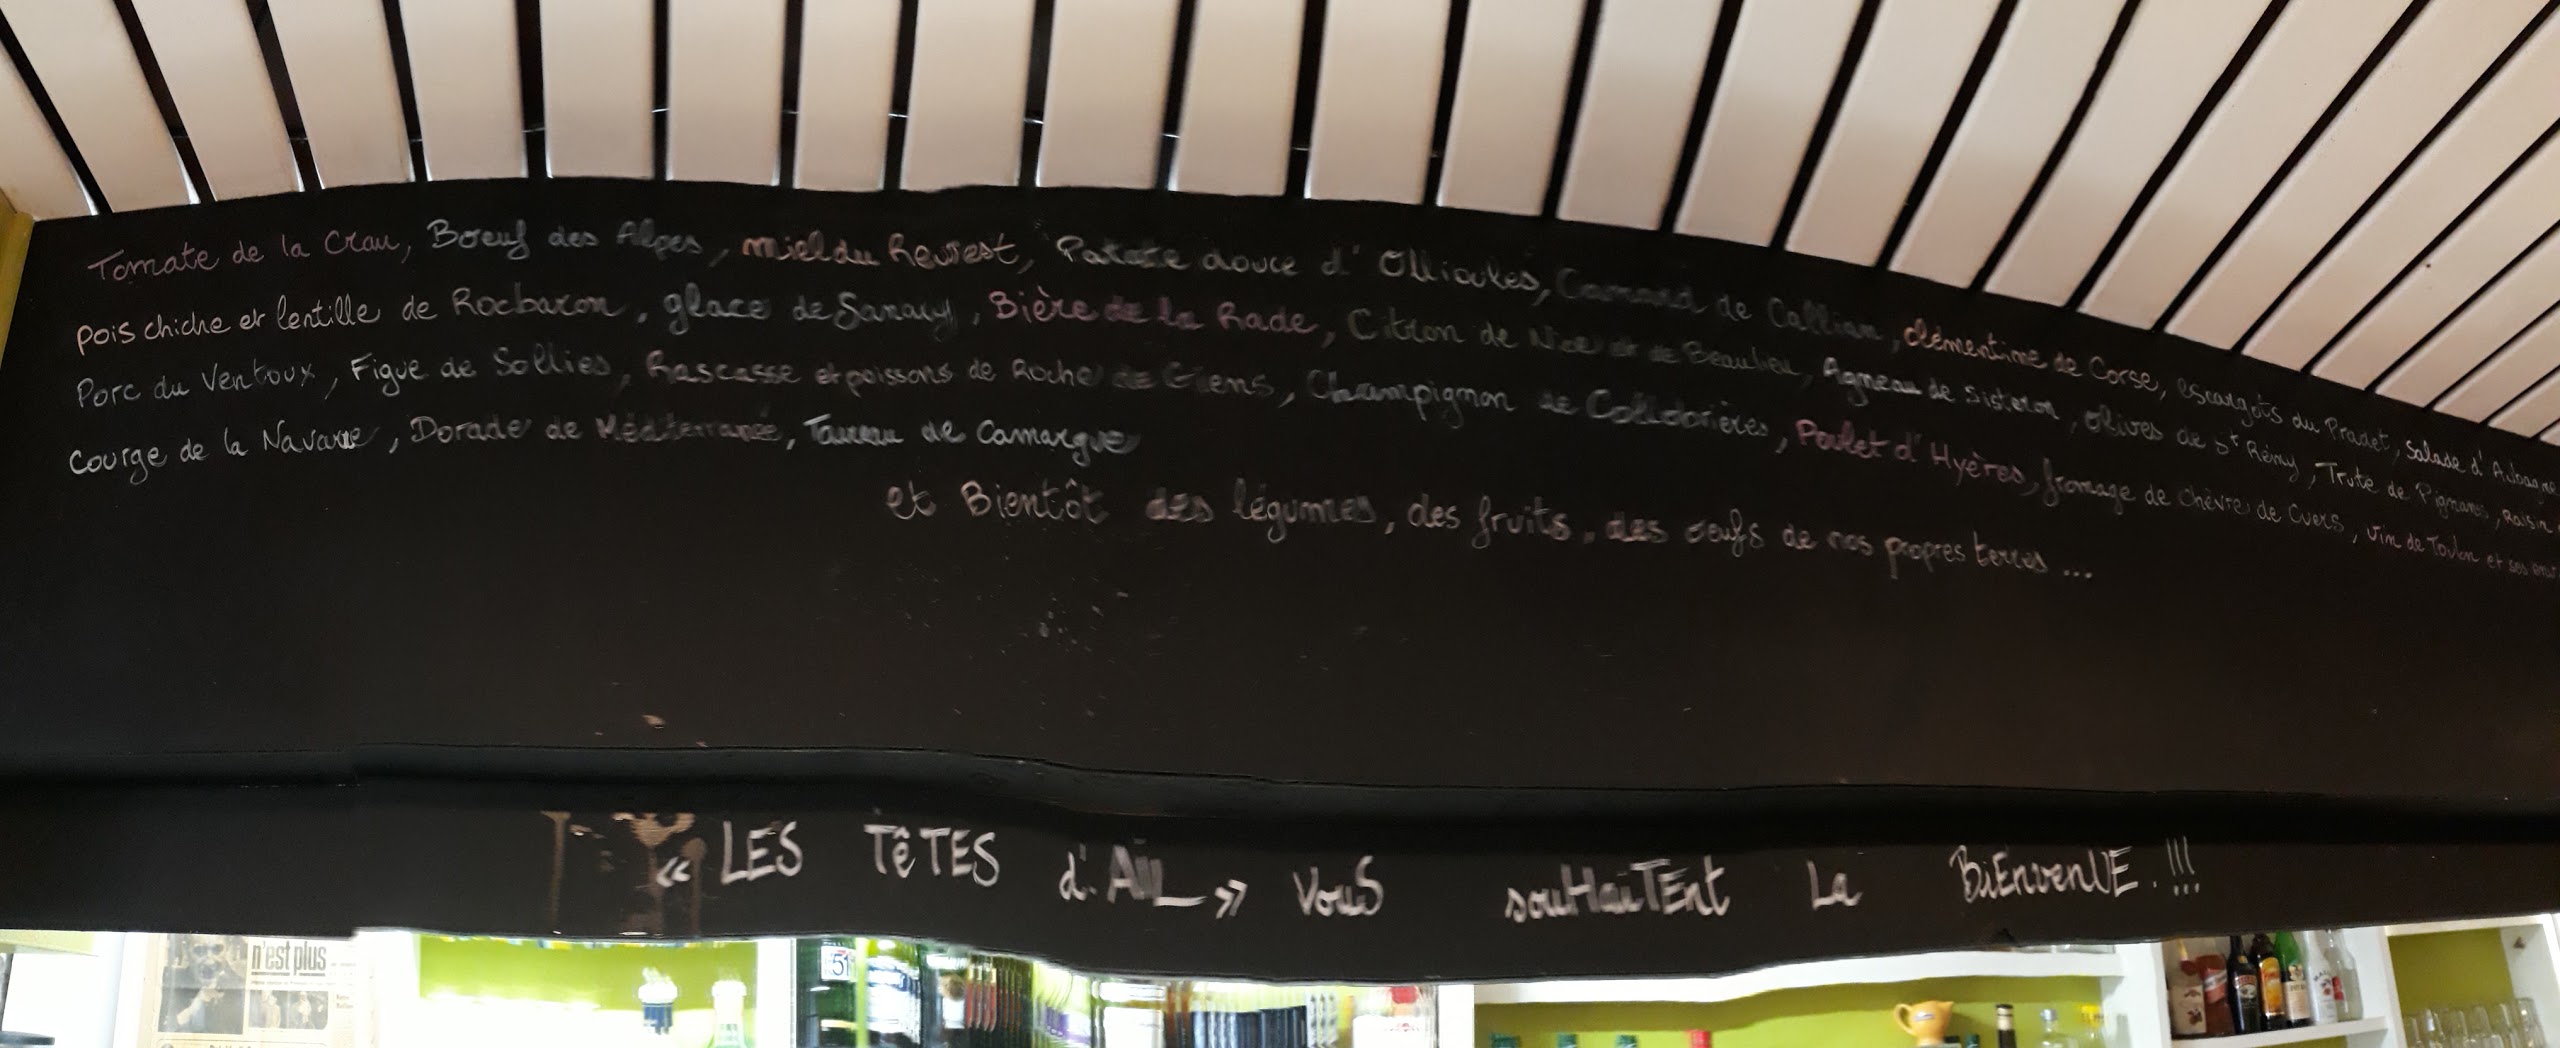 Tomate de la Crau, Boeuf des Alpes, miel du Revest, Patate douce d'Ollioules, Canard de Callian, clémentine de Corse, escargots du Pradet, Salade d'Aubagne
pois chiche et lentille de Rocbaron, glace de Sanary, Bière de la Rade, Citron de Nice et de Beaulieu, Agneau de Sisteron, Olives de St Rémy, Truite de Pignans, Raisin
Porc du Ventoux, Figue de Solliès, Rascasse et poissons de Roche de Giens, Champignon de Collobrières, Poulet d'Hyères, fromage de Chèvre de Cuers, Vin de Toulon et ses
Courge de la Navarre, Dorade de Méditerranée, Taureau de Camargue
et Bientôt des légumes, des fruits, des oeufs de nos propres terres...
« LES TêTES d'AIL » VouS souHaiTEnt La BiEnvenUE.!!!
n'est plus
51